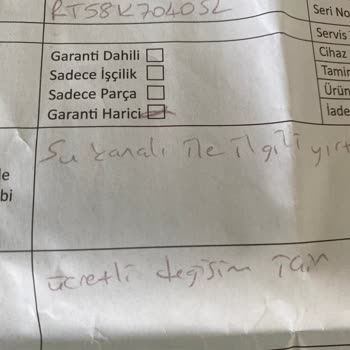 RT58K7040SL
Seri No
Servis
Garanti Dahili
Cihaz
Sadece İşçilik
Tamir
Sadece Parça
Ürün
Garanti Harici
İade
Su kanalı ile ilgili yırt
bi
ücretli değişim için